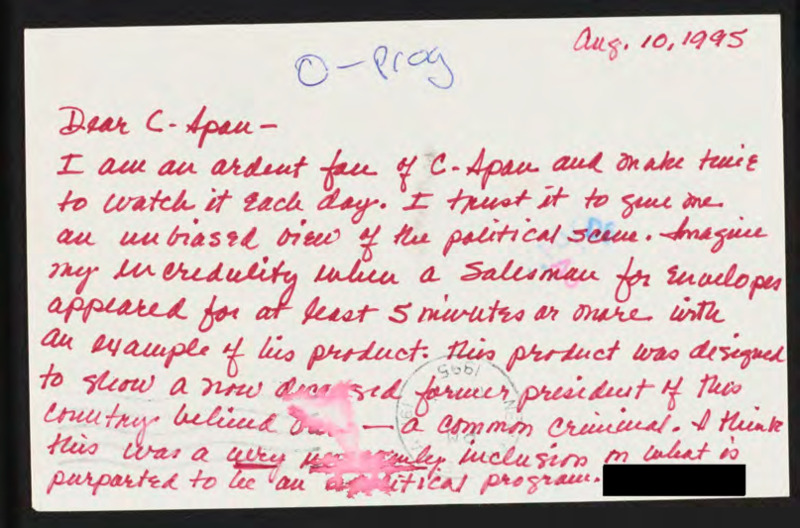 Aug. 10, 1995
O-Prog
Dear C-Span-
I am an ardent fan of C-Span and make time
to watch it each day. I trust it to give me
an unbiased view of the political scene. Imagine
my incredulity when a Salesman for Envelopes
appeared for at least 5 minutes or more with
an example of his product. This product was designed
to show a now deceased former president of this
country behind — a common criminal. I think
this was a very inclusion on what is
purported to be an program.
1995